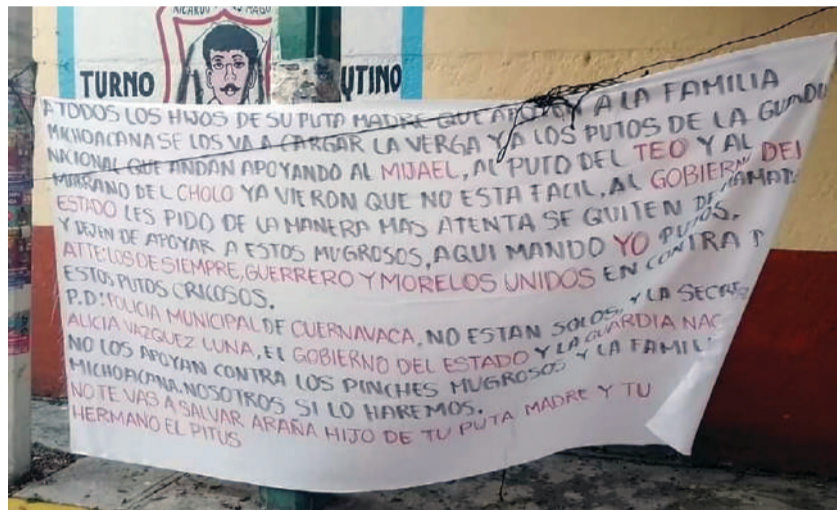 RICARDO
TURNO
UTINO
A TODOS LOS HIJOS DE SU PUTA MADRE QUE APOYAN A LA FAMILIA
MICHOACANA SE LOS VA A CARGAR LA VERGA Y A LOS PUTOS DE LA GUARDIA
NACIONAL QUE ANDAN APOYANDO AL MIJAEL, AL PUTO DEL TEO Y AL
MARRANO DEL CHOLO YA VIERON QUE NO ESTA FACIL, AL GOBIERNO DEL
ESTADO LES PIDO DE LA MANERA MAS ATENTA SE QUITEN DE
Y DEJEN DE APOYAR A ESTOS MUGROSOS, AQUI MANDO YO PUTOS.
ATTE: LOS DE SIEMPRE, GUERRERO Y MORELOS UNIDOS EN CONTRA
ESTOS PUTOS CRICOSOS.
P.D: POLICIA MUNICIPAL DE CUERNAVACA, NO ESTAN SOLOS, Y LA SECRE
ALICIA VAZQUEZ LUNA, EL GOBIERNO DEL ESTADO Y LA GUARDIA NAC
NO LOS APOYAN CONTRA LOS PINCHES MUGROSOS Y LA FAMILI
MICHOACANA. NOSOTROS SI LO HAREMOS.
NO TE VAS A SALVAR ARAÑA HIJO DE TU PUTA MADRE Y TU
HERMANO EL PITUS